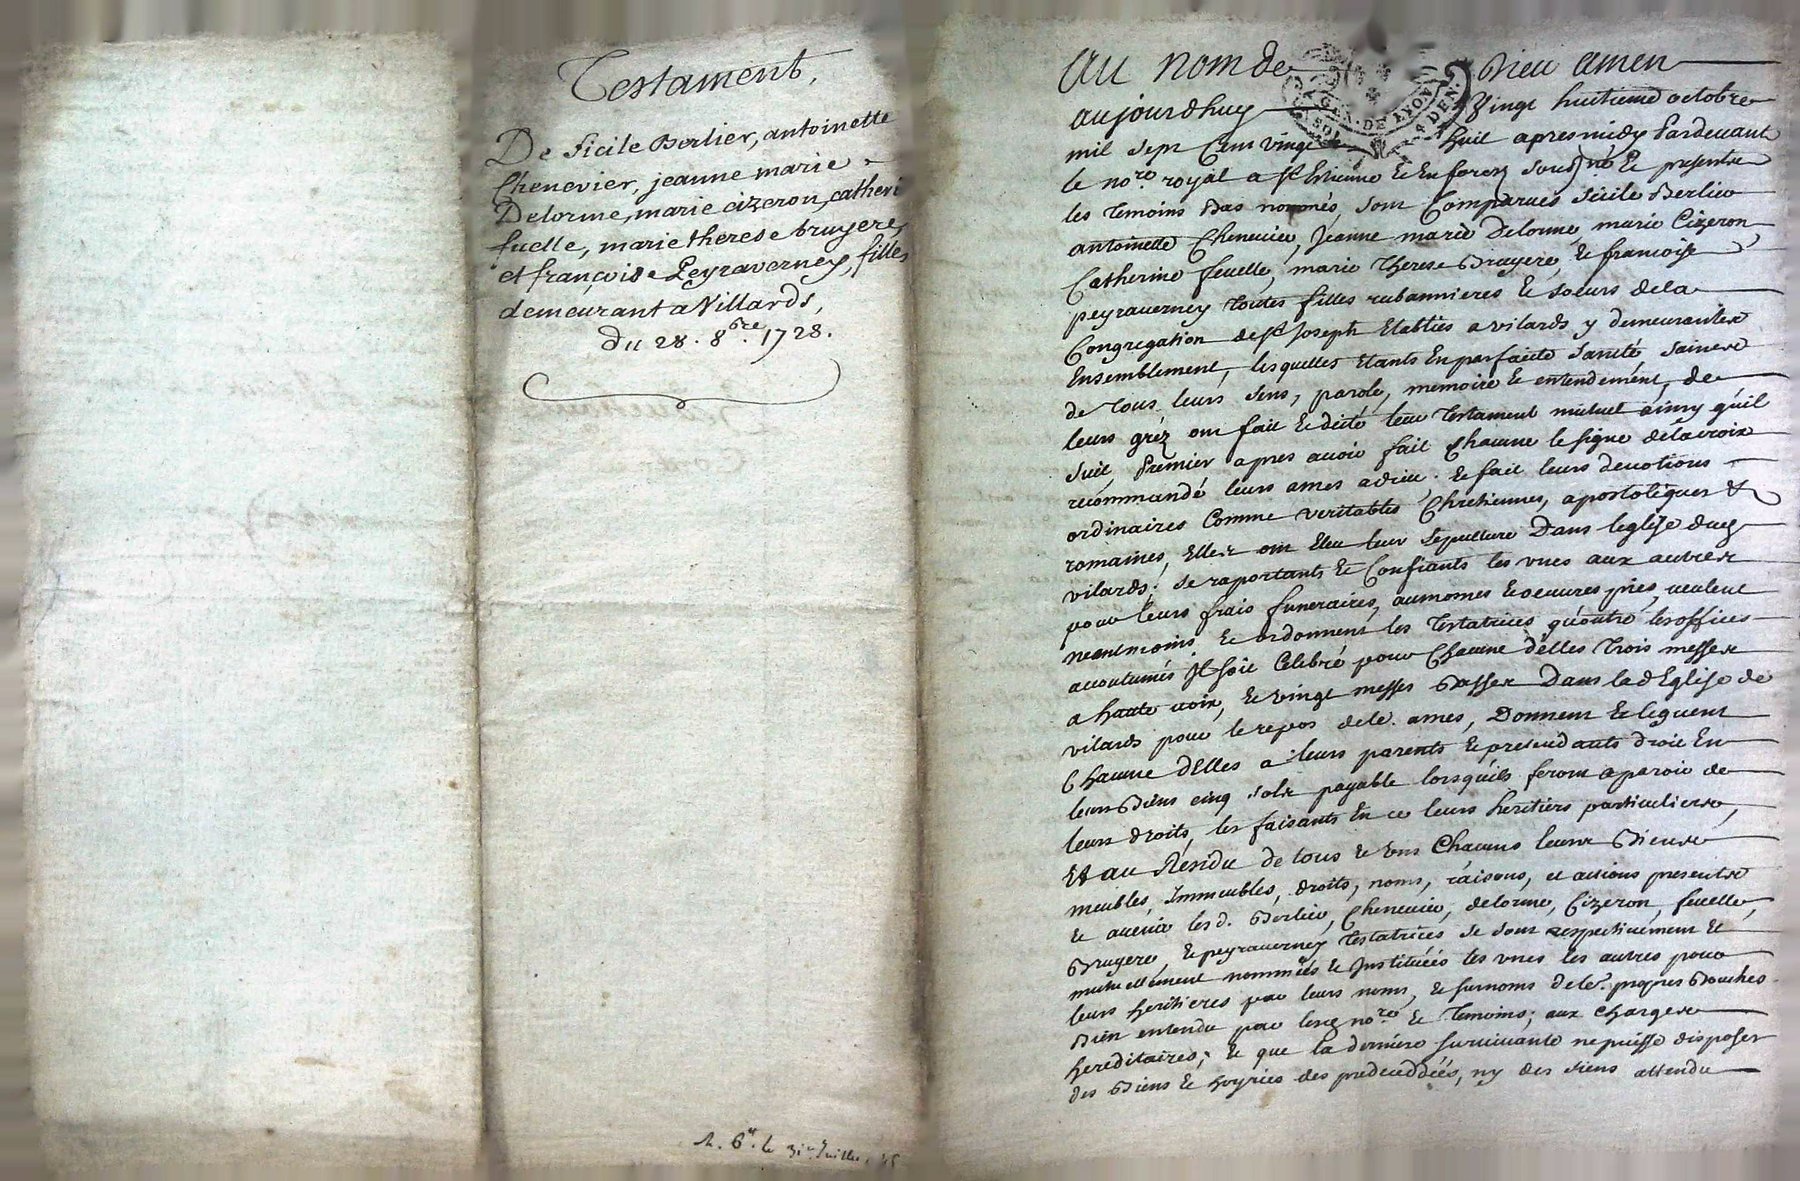 Testament,
De Sicile Berlier, antoinette
Chenevier, jeanne marie
Delorme, marie cizeron, catheri
fuelle, marie therese bruyere,
et françoise Peyraverney, filles
demeurant a Villards,
du 28. 8bre. 1728.
le 31 Juillet
au nom de Dieu amen
aujourdhuy Vingt huitieme octobre
GEN. DE LYON
SOL DEN
mil sept Cent vingt huit apres midy Pardevant
le nore. royal a St Etienne En forez souse. né Et presents
les temoins Bas nommés, sont Comparues Sicile Berlier
antoinette Chenevier, Jeanne marie Delorme, marie Cizeron,
Catherine feuelle, marie Therese Bruyere, & francoise
peyraverney toutes filles rubannieres & soeurs de la
Congregation de St Joseph Etablies a vilards y demeurantes
Ensemblement, lesquelles Etants En parfaite Santé saines
de tous leurs sens, parole, memoire & entendement, de
leurs gréz ont fait & dicté leur Testament mutuel ainsy qu'il
suit, Premier apres avoir fait Chacune le signe de la croix
recommandé leurs ames a dieu, & fait leurs devotions
ordinaires Comme veritables Chretiennes, apostoliques &
romaines, Elles ont Eleu leur Sepulture Dans leglise dud
vilards, se raportants & Confiants les unes aux autres
pour leurs frais funeraires, aumones & oeuvres pies, veulent
neantmoins & ordonnent les Testatrices qu'outre les offices
acoutumés Il soit Celebré pour Chacune d'elles Trois messes
a haute voix, & vingt messes Basses Dans lad Eglise de
vilards pour le repos de le. ames, Donnent & leguent
Chacune d'Elles a leurs parents & pretendants droit En
leurs Biens cinq sols payable lorsqu'ils feront aparoir de
leurs droits, les faisants En ce leurs heritiers particuliers,
Et au Résidu de tous & Uns Chacuns leurs Biens
meubles, Immeubles, droits, noms, raisons, et actions presents
& avenir lesd. Berlier, Chenevier, delorme, Cizeron, feuelle,
Bruyere, & peyraverney testatrices se sont respectivement &
mutuellement nommées & Instituées les unes les autres pour
leurs heritieres par leurs noms, & surnoms de le. propres Bouches
Bien entendu par lesd nore. & Temoins; aux Charges
hereditaires; & que la derniere survivante ne puisse disposer
des Biens & hoyries des predecedées, ny des siens attendu